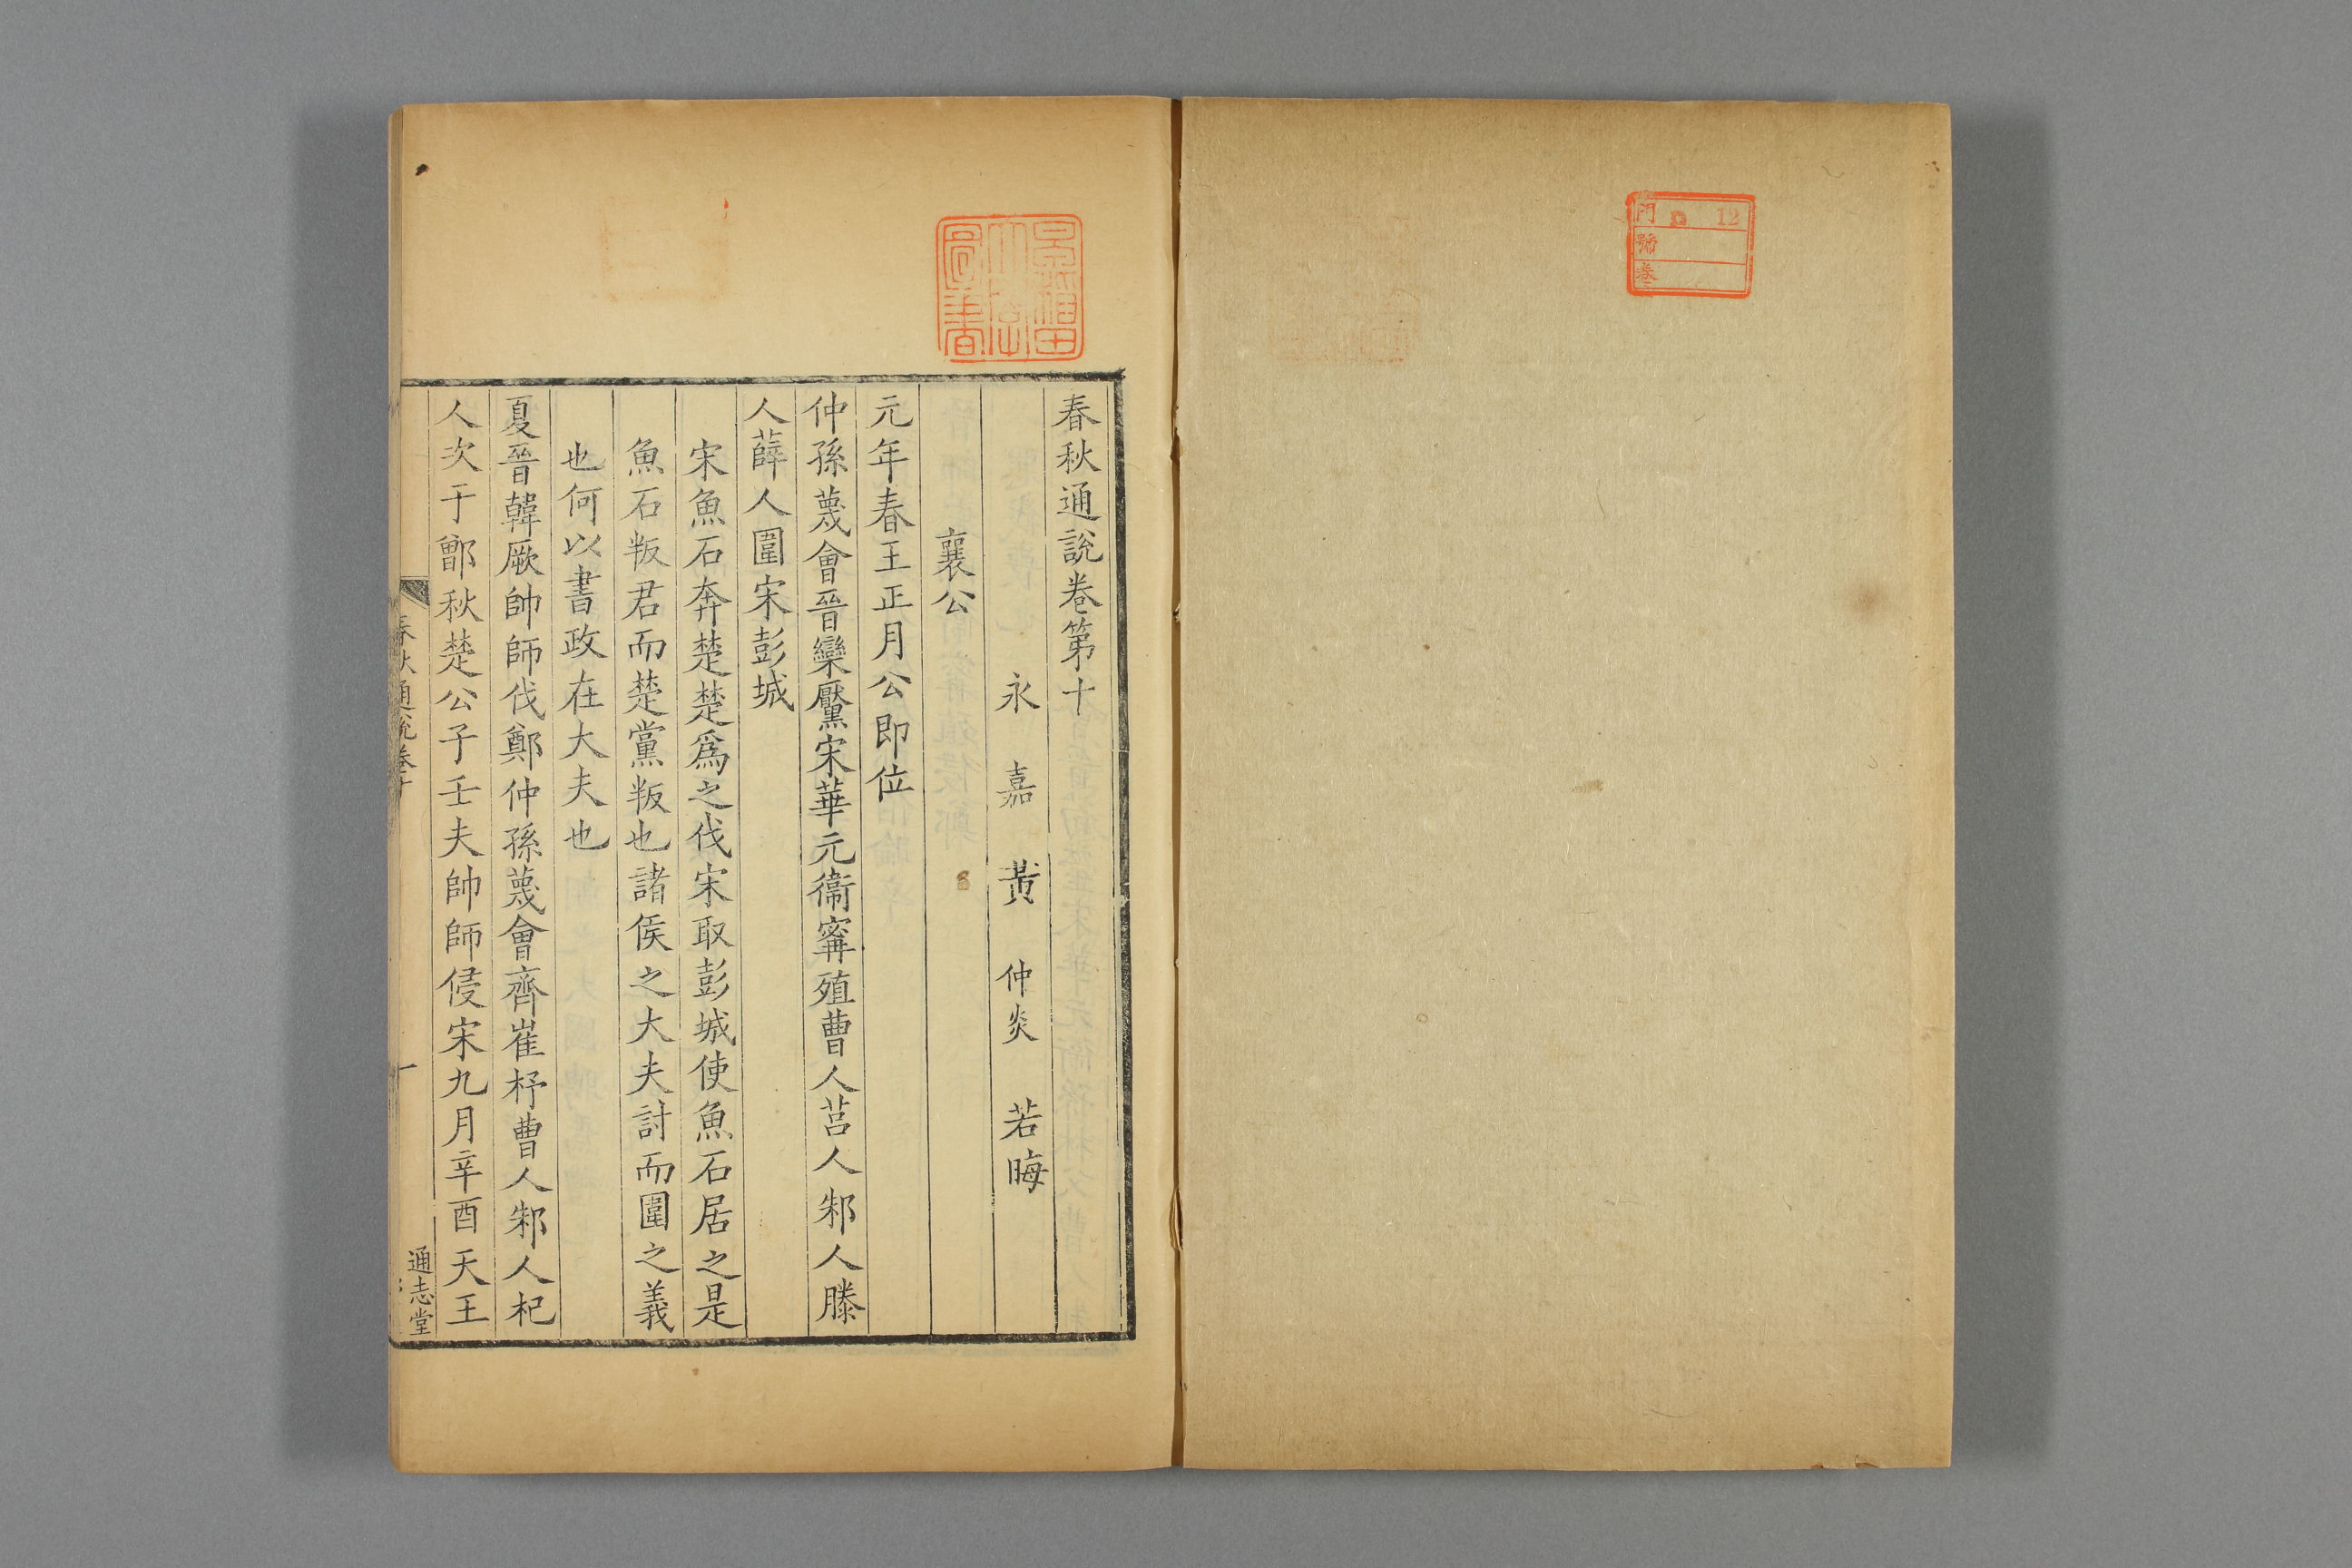 門 D 12
號
卷
春秋通說卷第十
永嘉黃仲炎若晦
襄公
元年春王正月公即位
仲孫蔑會晉欒黶宋華元衞甯殖曹人莒人邾人滕
人薛人圍宋彭城
宋魚石奔楚楚爲之伐宋取彭城使魚石居之是
魚石叛君而楚黨叛也諸侯之大夫討而圍之義
也何以書政在大夫也
夏晉韓厥帥師伐鄭仲孫蔑會齊崔杼曹人邾人杞
人次于鄫秋楚公子壬夫帥師侵宋九月辛酉天王
春秋通說卷十
一
通志堂